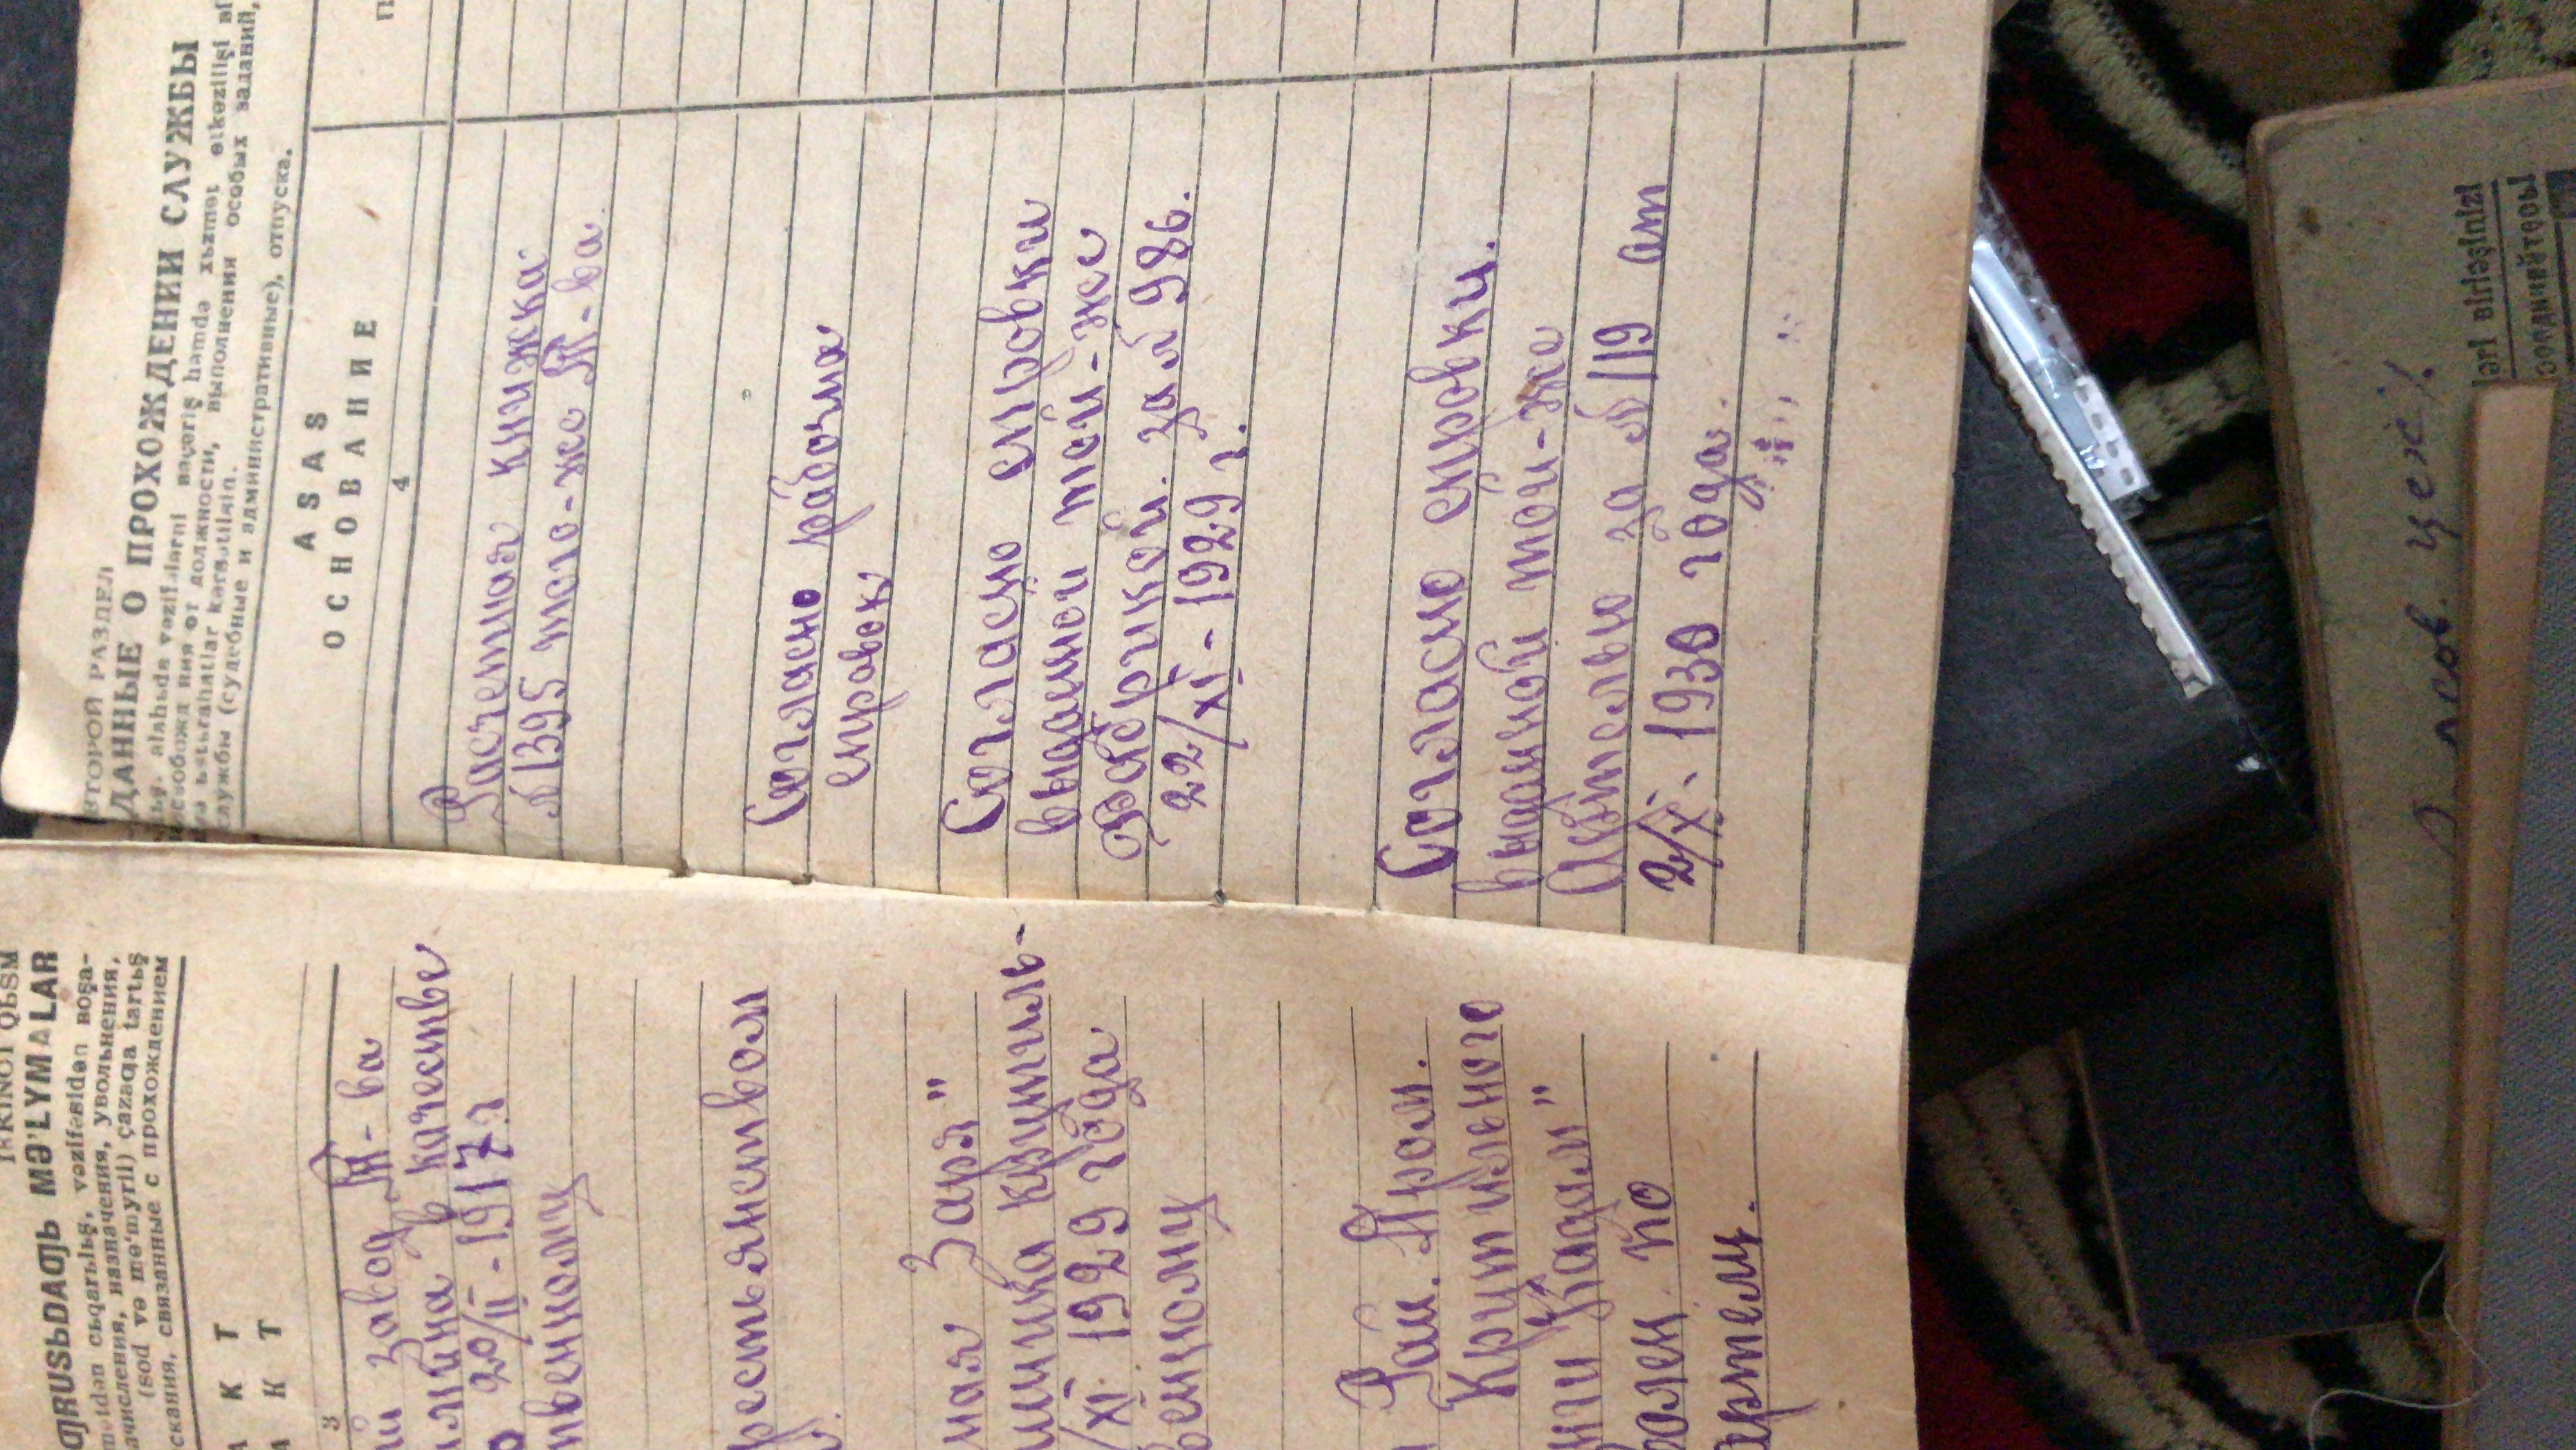 IKKINCI QЬSM
ƢRUSЬDAƢЬ MƏ'LYMALAR
cьqarьlьş, vəzifəsidən ʙoşa-
ачисления, назначения, увольнения,
(sod və mə'myrii) çazaƣa tartьş
скания, связанные с прохождением
А К Т
А К Т
3
завод Т-ва
в качестве
20/II-1917.г
твенному
рестьянством
ная Заря"
крутиль-
/XI 1929 года
венному
Рай. Пром.
Крутильного
нги Кадам"
волен по
артели.
ВТОРОЙ РАЗДЕЛ
ДАННЫЕ О ПРОХОЖДЕНИИ СЛУЖБЫ
alahьda vəzifələrni ʙəçəriş həmdə xьzmət өtkəzilişi
от должности, выполнения особых заданий,
və istirahatlar kərsətilsin.
службы (судебные и административные), отпуска.
ASAS
ОСНОВАНИЕ
4
Расчетная книжка
№1395 того-же Т-ва.
Согласно рабочих
справок
Согласно справки
выданной той-же
Фабрикой. за № 986.
22/XI-1929 г.
Согласно справки.
выданной той-же
Артелью за №119 от
2/X- 1930 года.
цех
ləri ʙirləşinizi
соединяйтесь!